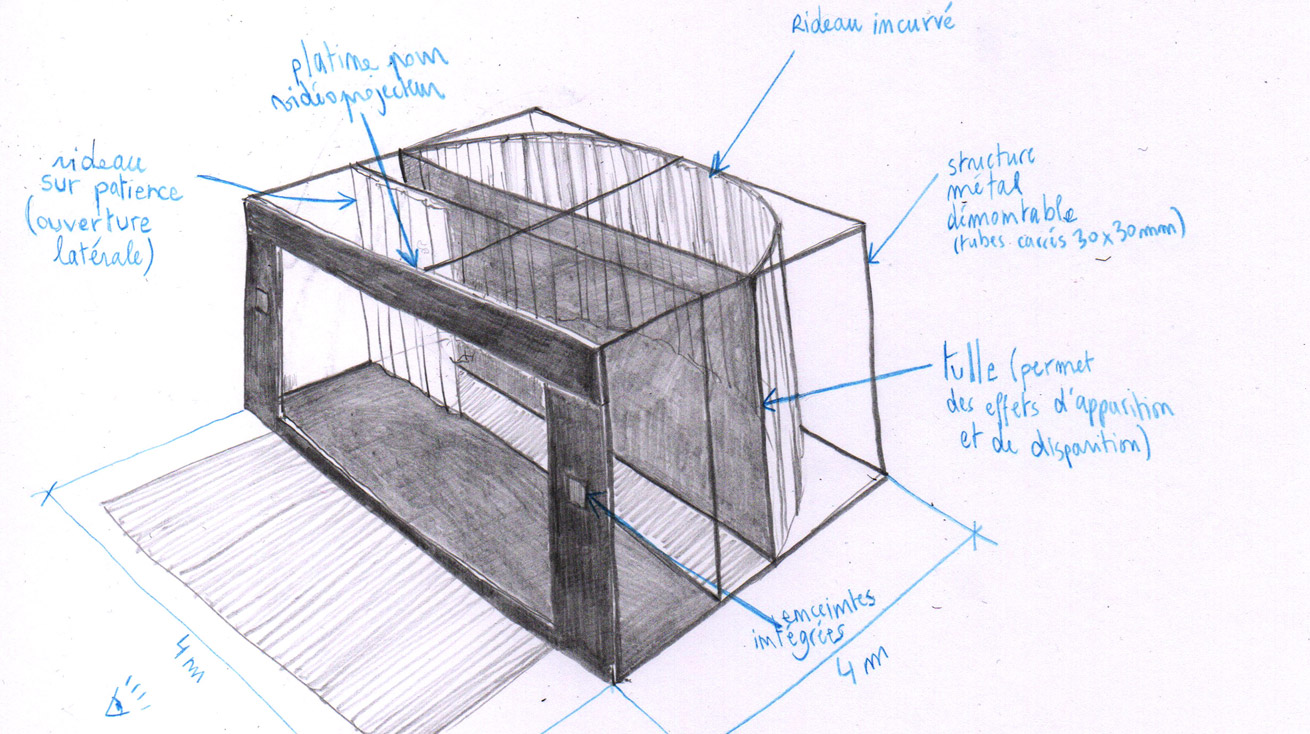 Rideau incurvé
platine pour
vidéoprojecteur
rideau
sur patience
(ouverture
latérale)
structure
métal
démontable
(tubes carrés 30x30mm)
tulle (permet
des effets d'apparition
et de disparition)
enceintes
intégrées
4 m
4 m